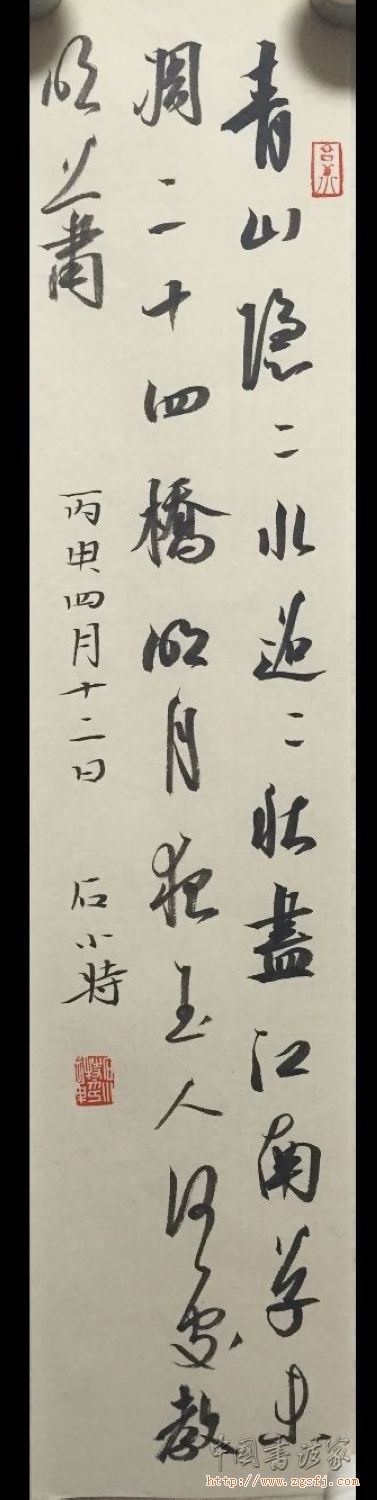 青山隱々水迢々秋盡江南草未
凋二十四橋明月夜玉人何處教
吹簫
丙申四月十二日 石小特
中国书法家
http://www.zgsfj.com